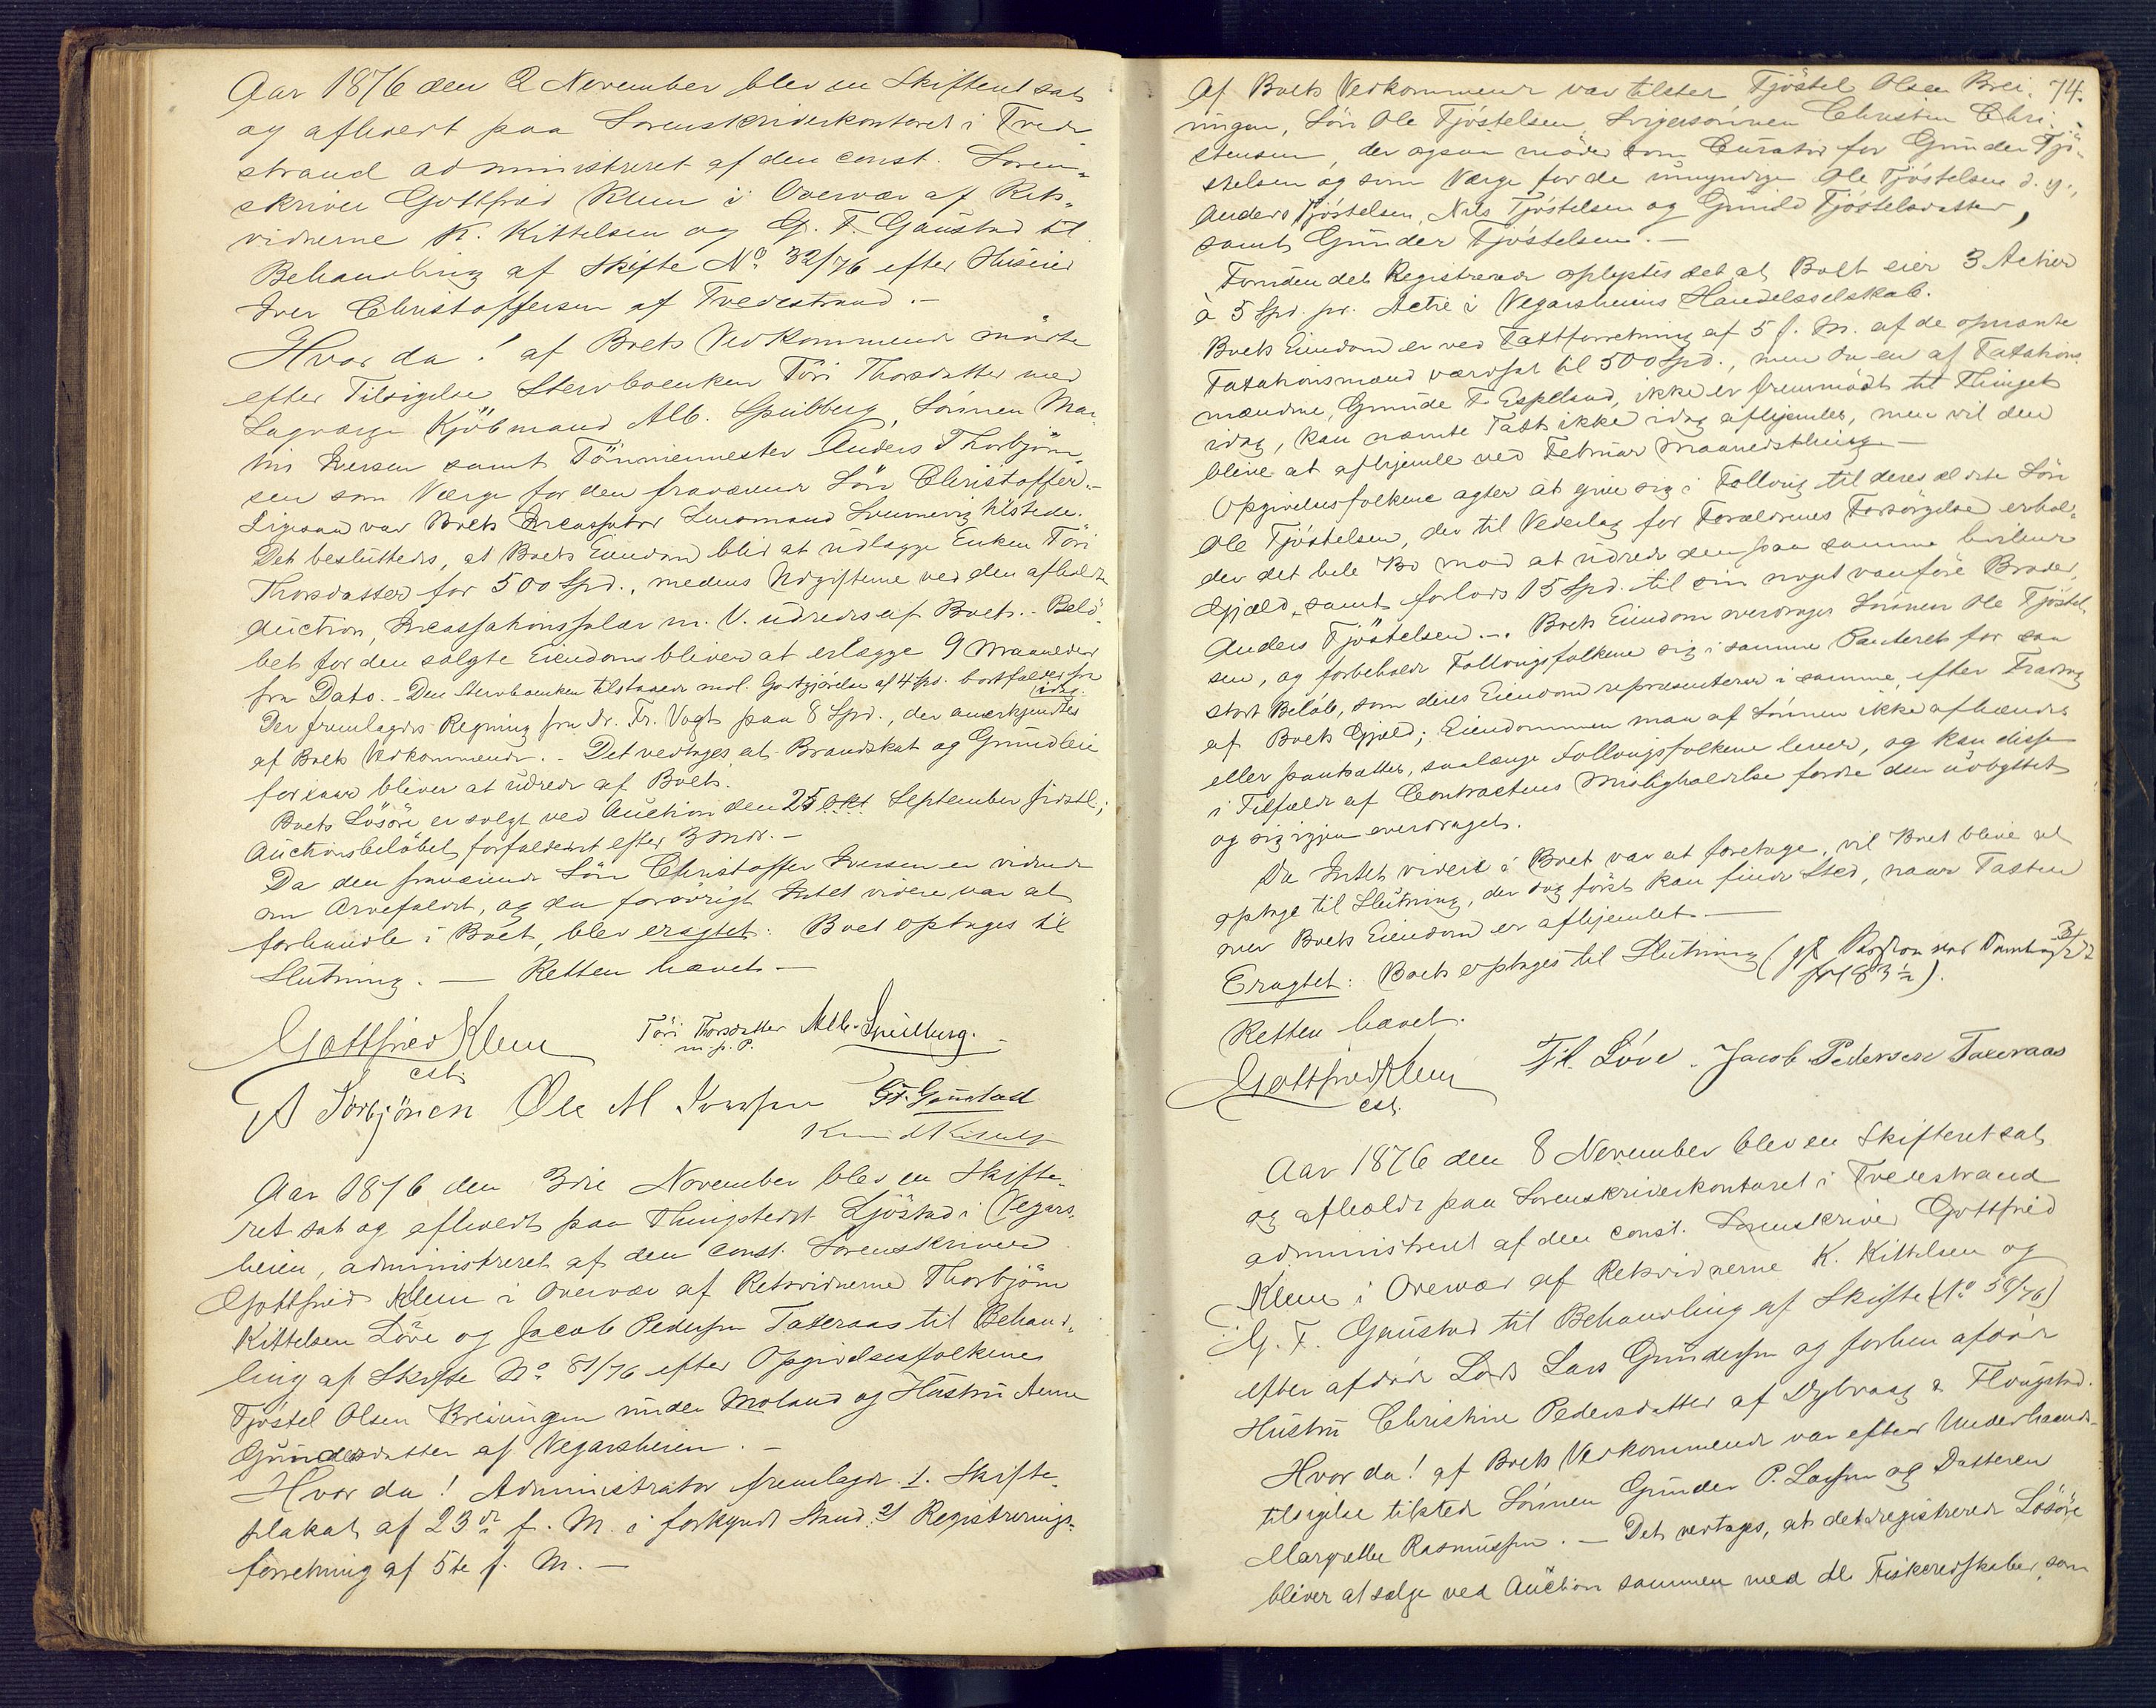 Aar 1876 den 2 November blev en Skifteret sat
og afholdt paa Sorenskriverkontoret i Tvede
strand administreret af den const. Soren-
skriver Gottfried Klem i Overvær af Rets-
vidnerne K. Kittelsen og G. F. Gaustad til
Behandling af Skifte No. 32/76 efter Huseier
Iver Christoffersen af Tvedestrand.-
Hvor da! af Boets Vedkommende mødte
efter Tilsigelse Stervboenken Töri Thorsdatter med
Lagværge Kjöbmand Alb. Spilberg, Sönnen Mar-
tin Iversen samt Tömmermester Anders Thorbjörn-
sen som Værge for den fraværende Sön Christoffer.-
Ligesaa var Boets Incassator Lensmand tilstede.
Det besluttedes, at Boets Eiendom blir at udlægge Enken Töri
Thorsdatter for 500 Spd., medens Udgifterne ved den afholdte
Auction, Incassationssalær m. V. udredes af Boet.- Belö-
bet for den solgte Eiendom bliver at erlægge 9 Maaneder
fra Dato.- Den Stervboenken tilstaaede mdl. Godtgjörelse af 4 Spd. bortfalder fra
idag.
Der fremlagdes Regning fra Dr. Fr. Vogt paa 8 Spd., der anerkjendtes
af Boets Vedkommende.- Det vedtages at Brandskat og Grundleie
for iaar bliver at udrede af Boet.
Boets Lösöre er solgt ved Auction den 25 Okt September sidstl.;
Auctionsbelöbet forfaldent efter 3 Mdr.-
Da den fraværende Sön Christoffer Iversen er vidende
om Arvefaldet, og da forövrigt Intet videre var at
forhandle i Boet, blev eragtet: Boet optages til
Slutning.- Retten hævet.-
Gottfried Klem Töri Thorsdatter Alb. Spilberg.
cst. m. p. P.
A Torbjönsen Ole M Iversen G.F. Gaustad
Knud Kittelsen
Aar 1876 den 3die November blev en Skifte-
ret sat og afholdt paa Thingstedet Ljöstad i Vegars-
heien, administreret af den const. Sorenskriver
Gottfried Klem i Overvær af Retsvidnerne Thorbjörn
Kittelsen Löve og Jacob Pedersen Taxeraas til Behand-
ling af Skifte No. 81/76 efter Opgivelsesfolkene
Tjöstel Olsen Breiungen under Moland og Hustru Anne
Gundersdatter af Vegarsheien.-
Hvor da! Administrator fremlagde 1. Skifte-
plakat af 23de f. M. i forkyndt Stand. 2) Registrerings-
forretning af 5te f. M.-
74.
Af Boets Vedkommende var tilstede Tjöstel Olsen Brei-
ungen, Sön Ole Tjöstelsen, Svigersönnen Christen Chri-
stensen, der ogsaa möder som Curator for Gunder Tjö-
stelsen og som Værge for de umyndige Ole Tjöstelsen d. y.,
Anders Tjöstelsen, Nils Tjöstelsen og Gunild Tjöstelsdatter,
samt Gunder Tjöstelsen.-
Foruden det Registrerede oplystes det at Boet eier 3 Actier
à 5 Spd. pr. Actie i Vegarsheiens Handelsselskab.
Boets Eiendom er ved Taxtforretning af 5 f. M. af de opnævnte
Taxationsmænd værdsat til 500 Spd., men da en af Taxations-
mændene, Gunde T. Espelund, ikke er fremmödt til Thinget
idag, kan nævnte Taxt ikke idag afhjemles, men vil den
blive at afhjemle ved Februar Maanedsthing.-
Opgivelsesfolkene agter at give sig i Follaug til deres ældste Sön
Ole Tjöstelsen, der til Vederlag for Forældrenes Forsörgelse erhol-
der det hele Bo mod at udrede den paa samme hvilende
Gjæld, samt forlods 15 Spd. til sin noget vanföre Broder,
Anders Tjöstelsen.-. Boets Eiendom overdrages Sönnen Ole Tjöstel-
sen, og forbeholde Follaugsfolkene sig i samme Panteret for saa
stort Belöb, som deres Eiendom repræsenterer i samme, efter Fradrag
af Boets Gjæld; Eiendommen maa af Sönnen ikke afhændes
eller pantsættes, saalænge Follaugsfolkene lever, og kan disse
i Tilfælde af Contractens Misligholdelse fordre den udbyttet
og sig igjen overdraget.
Da Intet videre i Boet var at foretage, vil Boet blive at
optage til Slutning, der dog först kan finde Sted, naar Taxten
over Boets Eiendom er afhjemlet.-
Eragtet: Boet optages til Slutning
Retten hævet.
Gottfried Klem Th. Löve. Jacob Pedersen Taxeraas
cst.
Aar 1876 den 8 November blev en Skifteret sat
og afholdt paa Sorenskriverkontoret i Tvedestrand
administreret af den const. Sorenskriver Gottfried
Klem i Overvær af Retsvidnerne K. Kittelsen og
G. F. Gaustad til Behandling af Skifte (No 58/76)
efter afdöde Lods Lars Gundersen og forhen afdöde
Hustru Christine Pedersdatter af Dybvaag &
Hvor da! af Boets Vedkommende var efter Underhaands-
tilsigelse tilstede Sönnen Gunder P. Larsen og Datteren
Margrethe Rasmussen.- Det vedtages, at det registrerede Lösöre
bliver at sælge ved Auction sammen med de Fiskeredskaber, som